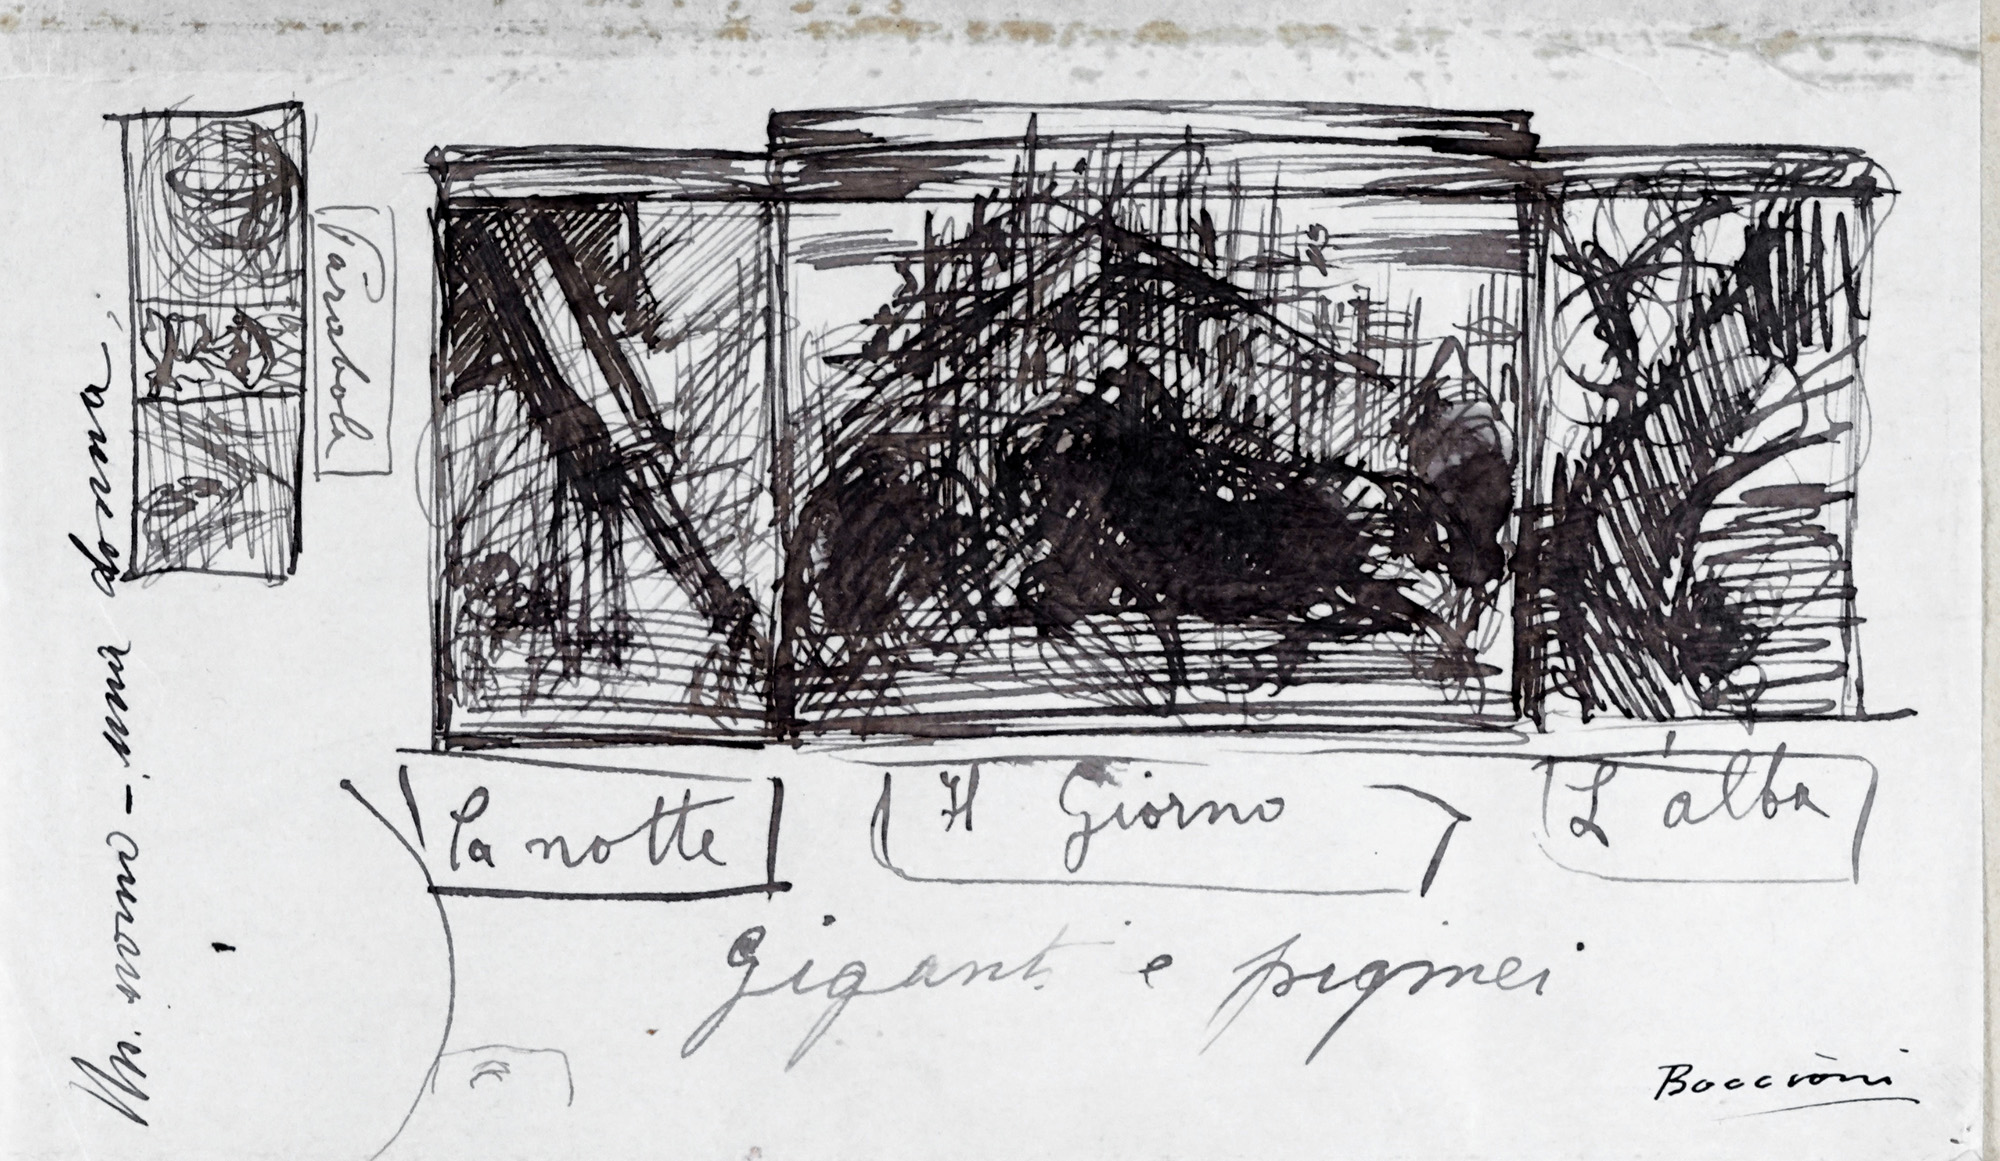 Un uomo - una donna
Parabole
la notte
Il Giorno
L'alba
Giganti e pigmei
Boccioni